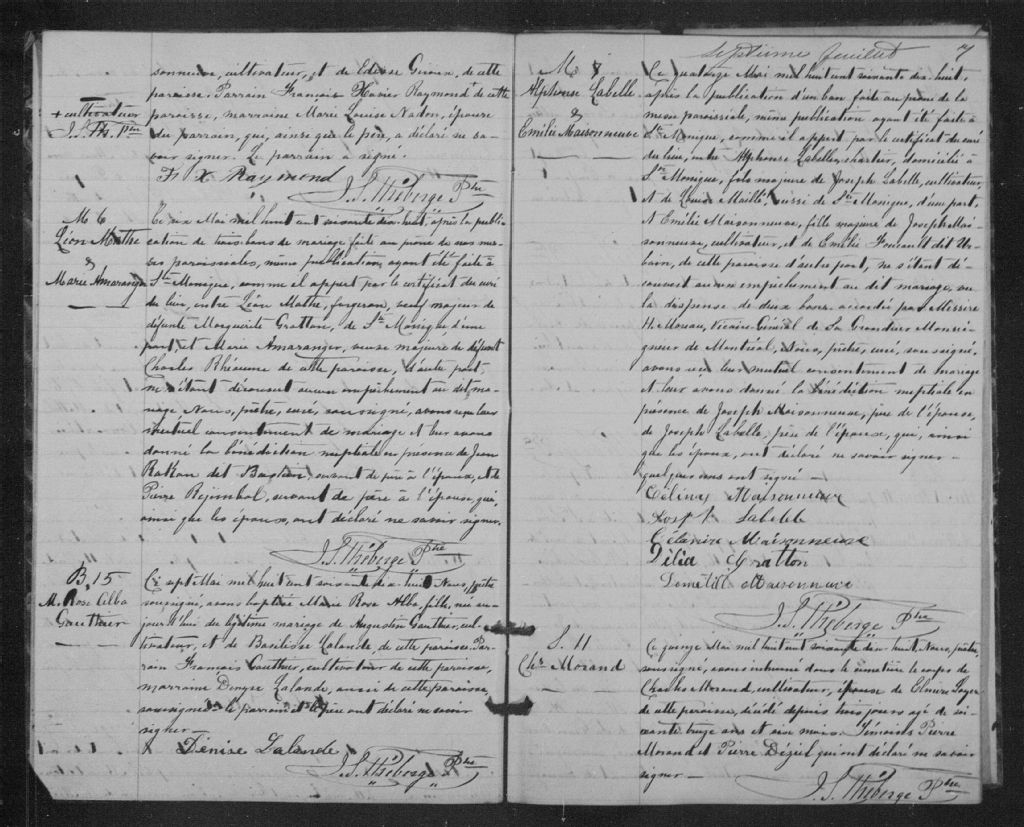 sonneuve, cultivateur, et de Edesse Giroux, de cette
paroisse. Parrain François Xavier Raymond + de cette
+ cultivateur
J. S. Th. Ptre
paroisse, marraine Marie Louise Nadon, épouse
du parrain, qui, ainsi que le père, a déclaré ne sa-
voir signer. Le parrain a signé.
F. X. Raymond
J. S. Théberge Ptre
M 6
Léon Mathe
&
Marie Amaranger
Ce six Mai mil huit cent soixante dix huit, après la publi-
cation de trois bans de mariage faite au prône de nos mes-
ses paroissiales, même publication ayant été faite à
Ste Monique, comme il appert par le certificat du curé
du lieu, entre Léon Mathe, forgeron, veuf majeur de
défunte Marguerite Gratton, de Ste Monique, d'une
part, et Marie Amaranger, veuve majeure de défunt
Charles Rhéaume de cette paroisse, d'autre part,
ne s'étant découvert aucun empêchement au dit ma-
riage Nous, prêtre, curé, soussigné, avons reçu leur
mutuel consentement de mariage et leur avons
donné la bénédiction nuptiale en présence de Jean
dit Bastien, servant de père à l'époux, et de
Pierre servant de père à l'épouse, qui,
ainsi que les époux, ont déclaré ne savoir signer.
J. S. Théberge Ptre
B. 15
M. Rose Alba
Gauthier
Ce sept Mai mil huit cent soixante dix huit, Nous, prêtre
soussigné, avons baptisé Marie Rose Alba, fille, née au-
jourd'hui du légitime mariage de Augustin Gauthier, cul-
tivateur, et de Basilisse Lalande, de cette paroisse. Par-
rain François Gauthier, cultivateur de cette paroisse,
marraine Denyse Lalande, aussi de cette paroisse,
soussignée - le parrain et le père ont déclaré ne savoir
signer -
X Denise Lalande
J. S. Théberge Ptre
Septième feuillet
7
M 7
Alphonse Labelle
&
Emilie Maisonneuve
Ce quatorze Mai mil huit cent soixante dix-huit,
après la publication d'un ban faite au prône de la
messe paroissiale, même publication ayant été faite à
Ste Monique, comme il appert par le certificat du curé
du lieu, entre Alphonse Labelle, charretier, domicilié à
Ste Monique, fils majeur de Joseph Labelle, cultivateur,
et de Louise Maillé, aussi de Ste Monique, d'une part,
et Emilie Maisonneuve, fille majeure de Joseph Mai-
sonneuve, cultivateur, et de Emilie Foucault dit Ur-
bain, de cette paroisse d'autre part, ne s'étant dé-
couvert aucun empêchement au dit mariage, vu
la dispense de deux bans accordée par Messire
H. Moreau, Vicaire-Général de Sa Grandeur Monsei-
gneur de Montréal, Nous, prêtre, curé, soussigné,
avons reçu leur mutuel consentement de mariage
et leur avons donné la bénédiction nuptiale en
présence de Joseph Maisonneuve, père de l'épouse,
de Joseph Labelle, père de l'époux, qui, ainsi
que les époux, ont déclaré ne savoir signer -
quelques uns ont signé -
Célina Maisonneuve
Joseph Labelle
Célanire Maisonneuve
Délia Gratton
Maisonneuve
J. S. Théberge Ptre
S. 11
Chs Morand
Ce quinze Mai mil huit cent soixante dix huit, Nous, prêtre,
soussigné, avons inhumé dans le cimetière le corps de
Charles Morand, cultivateur, époux de Elmire
de cette paroisse, décédé depuis trois jours agé de soi-
xante treize ans et six mois. Témoins Pierre
Morand et Pierre Dézéil qui ont déclaré ne savoir
signer -
J. S. Théberge Ptre